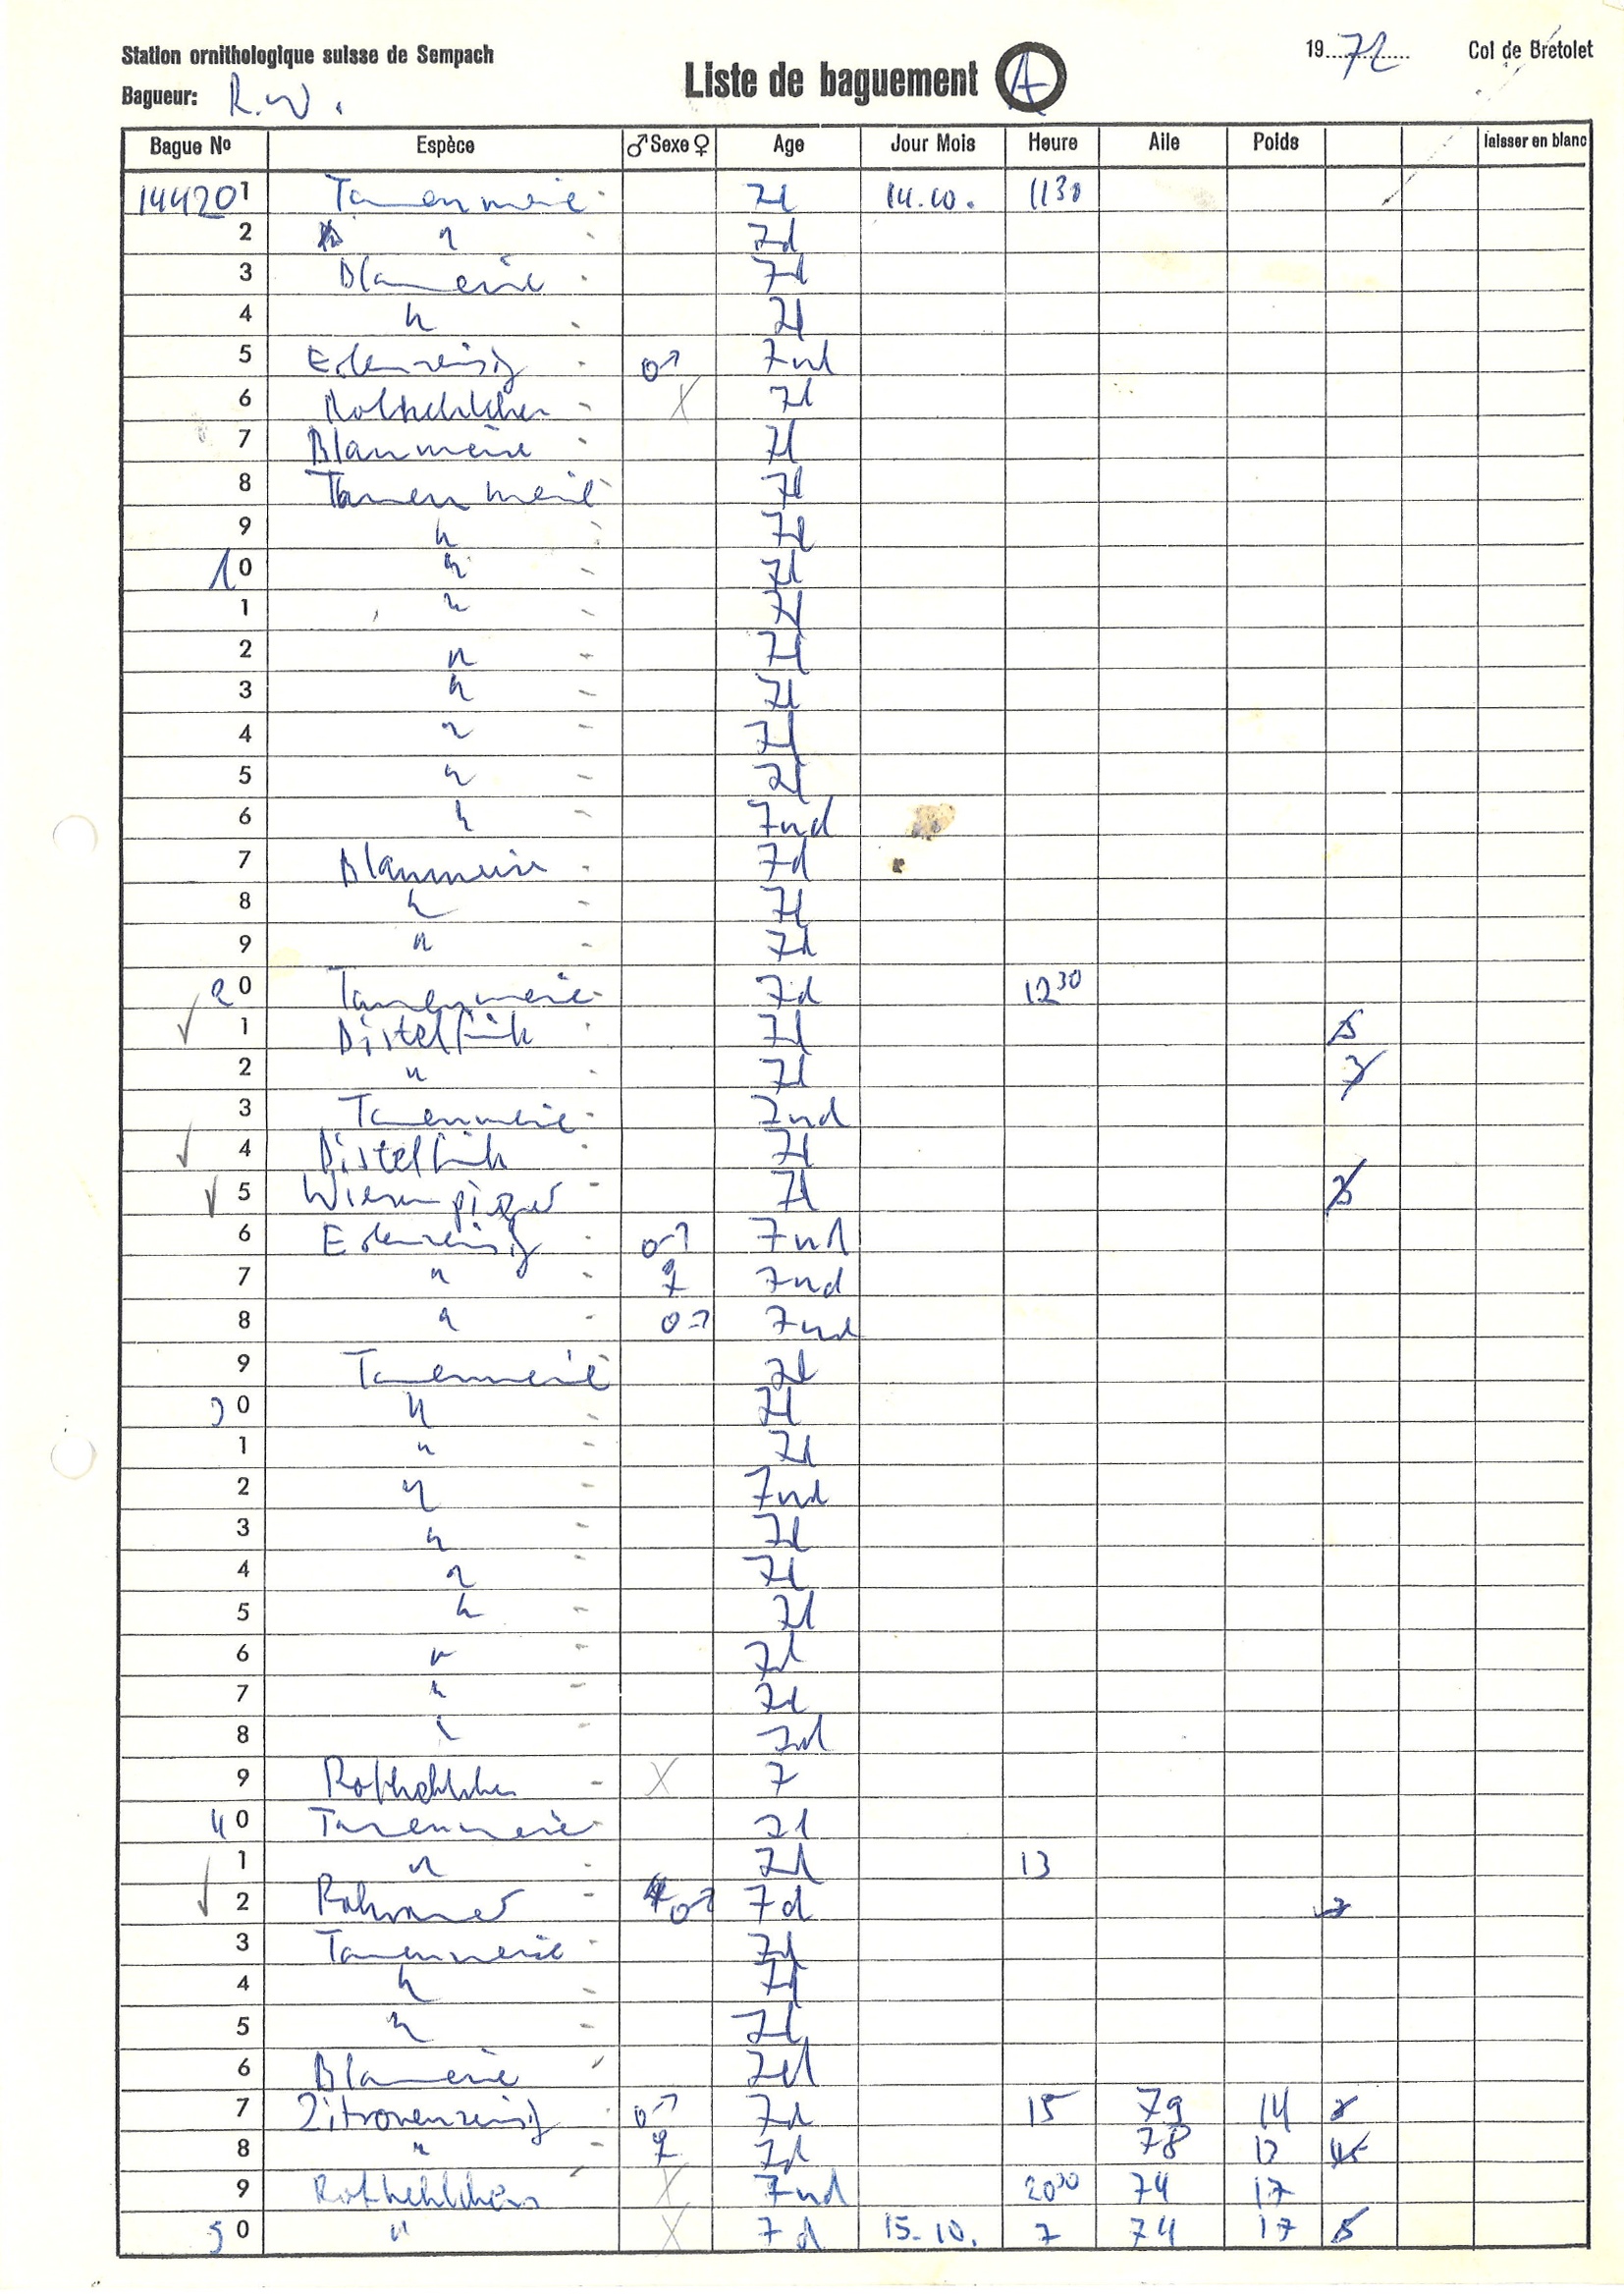 Station ornithologique suisse de Sempach
Bagueur: R.W.
Liste de baguement A
1972 Col de Bretolet
Bague No Espèce ♂ Sexe ♀ Age Jour Mois Heure Aile Poids laisser en blanc
144201 Tannenmeise 7d 14.10. 1130
2 " 7d
3 Blaumeise 7d
4 " 7d
5 Erlenzeisig ♂ 7nd
6 Rotkehlchen X 7d
7 Blaumeise 7d
8 Tannenmeise 7d
9 " 7d
10 " 7d
1 " 7d
2 " 7d
3 " 7d
4 " 7d
5 " 7d
6 " 7nd
7 Blaumeise 7d
8 " 7d
9 " 7d
20 Tannenmeise 7d 1230
✓ 1 Distelfink 7d
2 " 7d
3 Tannenmeise 7nd
✓ 4 Distelfink 7d
✓ 5 Wiesenpieper 7d
6 Erlenzeisig ♂ 7nd
7 " ♀ 7nd
8 " ♂ 7nd
9 Tannenmeise 7d
30 " 7d
1 " 7d
2 " 7nd
3 " 7d
4 " 7d
5 " 7d
6 " 7d
7 " 7d
8 " 7d
9 Rotkehlchen X 7
40 Tannenmeise 7d
1 " 7d 13
✓ 2 Rohrammer ♂ 7d
3 Tannenmeise 7d
4 " 7d
5 " 7d
6 Blaumeise 7d
7 Zitronenzeisig ♂ 7d 15 79 14
8 " ♀ 7d 78 13
9 Rotkehlchen X 7nd 2000 74 17
50 " X 7d 15.10. 7 74 17